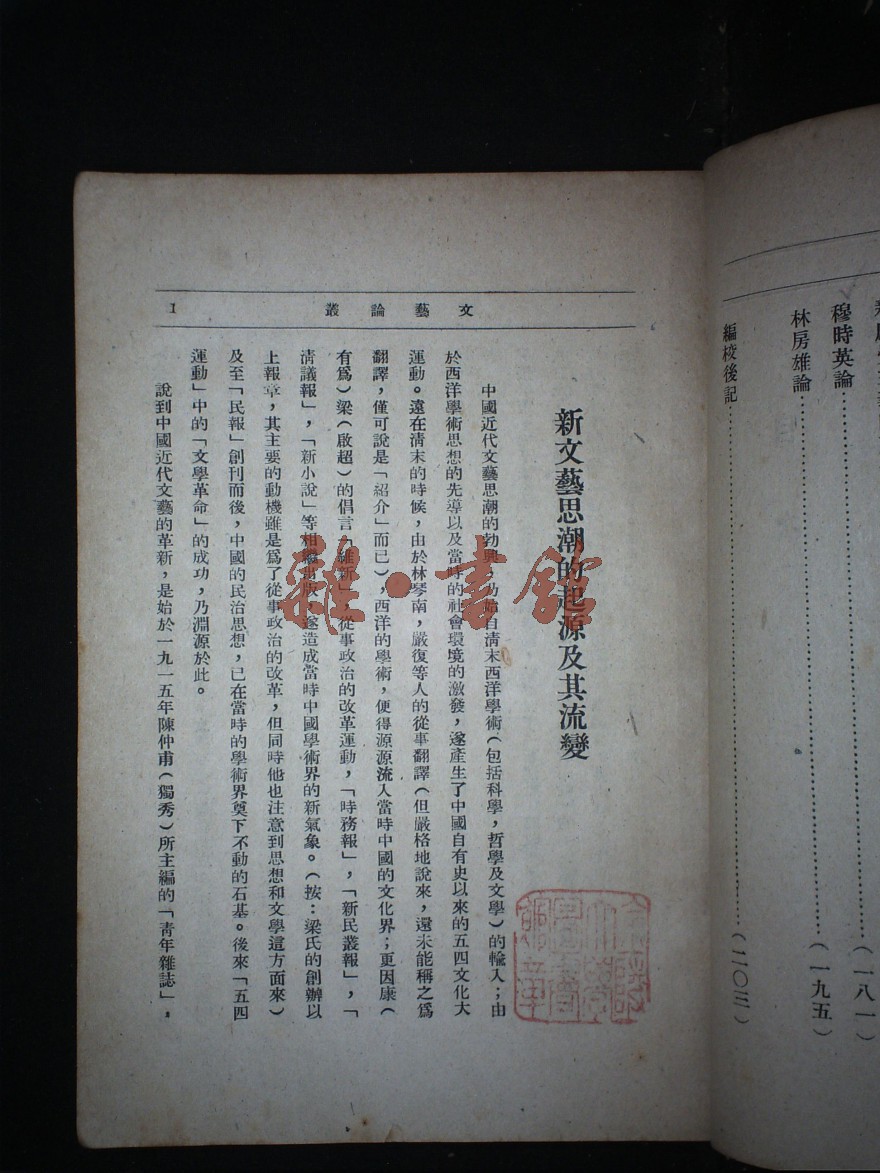 穆時英論……………………(一八一)
林房雄論……………………(一九五)
編校後記……………………(二〇三)
文藝論叢
1
新文藝思潮的起源及其流變
中國近代文藝思潮的勃興,始自清末西洋學術(包括科學,哲學及文學)的輸入;由
於西洋學術思想的先導以及當時的社會環境的激發,遂產生了中國自有史以來的五四文化大
運動。遠在清末的時候,由於林琴南,嚴復等人的從事翻譯(但嚴格地說來,還未能稱之爲
翻譯,僅可說是「紹介」而已),西洋的學術,便得源源流入當時中國的文化界;更因康(
有爲)梁(啟超)的倡言「維新」,從事政治的改革運動,「時務報」,「新民叢報」,「
清議報」,「新小說」等相繼出版,遂造成當時中國學術界的新氣象。(按:梁氏的創辦以
上報章,其主要的動機雖是爲了從事政治的改革,但同時他也注意到思想和文學這方面來)
及至「民報」創刊而後,中國的民治思想,已在當時的學術界奠下不動的石基。後來「五四
運動」中的「文學革命」的成功,乃淵源於此。
說到中國近代文藝的革新,是始於一九一五年陳仲甫(獨秀)所主編的「青年雜誌」,
雜·書館